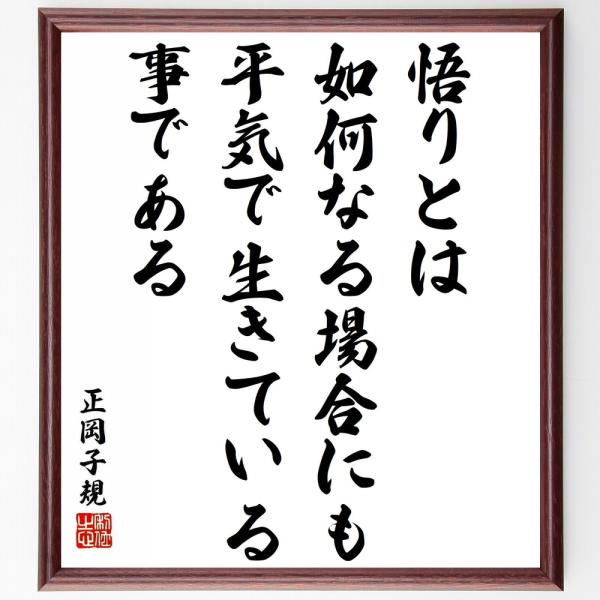 悟りとは
如何なる場合にも
平気で生きている
事である
正岡子規